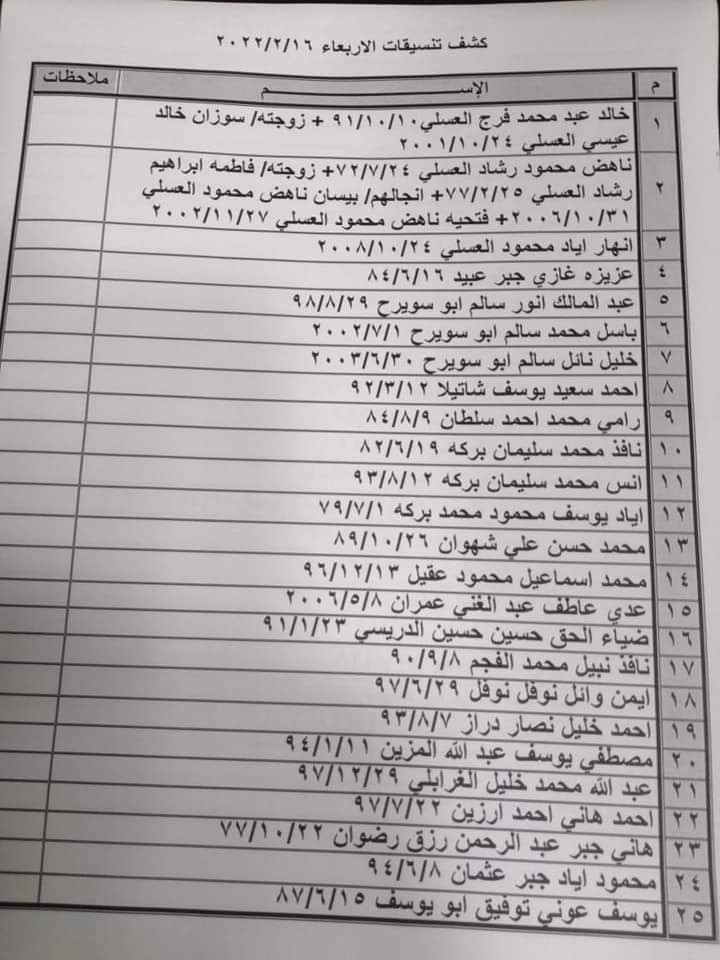 كشف تنسيقات الاربعاء ٢٠٢٢/٢/١٦
م الإســـــــم ملاحظات
١ خالد عبد محمد فرج العسلي ٩١/١٠/١٠ + زوجته/ سوزان خالد
عيسي العسلي ٢٠٠١/١٠/٢٤
٢ ناهض محمود رشاد العسلي ٧٢/٧/٢٤+ زوجته/ فاطمه ابراهيم
رشاد العسلي ٧٧/٢/٢٥+ انجالهم/ بيسان ناهض محمود العسلي
٢٠٠٦/١٠/٣١+ فتحيه ناهض محمود العسلي ٢٠٠٢/١١/٢٧
٣ انهار اياد محمود العسلي ٢٠٠٨/١٠/٢٤
٤ عزيزه غازي جبر عبيد ٨٤/٦/١٦
٥ عبد المالك انور سالم ابو سويرح ٩٨/٨/٢٩
٦ باسل محمد سالم ابو سويرح ٢٠٠٢/٧/١
٧ خليل نائل سالم ابو سويرح ٢٠٠٣/٦/٣٠
٨ احمد سعيد يوسف شاتيلا ٩٢/٣/١٢
٩ رامي محمد احمد سلطان ٨٤/٨/٩
١٠ نافذ محمد سليمان بركه ٨٢/٦/١٩
١١ انس محمد سليمان بركه ٩٣/٨/١٢
١٢ اياد يوسف محمود محمد بركه ٧٩/٧/١
١٣ محمد حسن علي شهوان ٨٩/١٠/٢٦
١٤ محمد اسماعيل محمود عقيل ٩٦/١٢/١٣
١٥ عدي عاطف عبد الغني عمران ٢٠٠٦/٥/٨
١٦ ضياء الحق حسين حسين الدريسي ٩١/١/٢٣
١٧ نافذ نبيل محمد الفجم ٩٠/٩/٨
١٨ ايمن وائل نوفل نوفل ٩٧/٦/٢٩
١٩ احمد خليل نصار دراز ٩٣/٨/٧
٢٠ مصطفي يوسف عبد الله المزين ٩٤/١/١١
٢١ عبد الله محمد خليل الغرابلي ٩٧/١٢/٢٩
٢٢ احمد هاني احمد ارزين ٩٧/٧/٢٢
٢٣ هاني جبر عبد الرحمن رزق رضوان ٧٧/١٠/٢٢
٢٤ محمود اياد جبر عثمان ٩٤/٦/٨
٢٥ يوسف عوني توفيق ابو يوسف ٨٧/٦/١٥